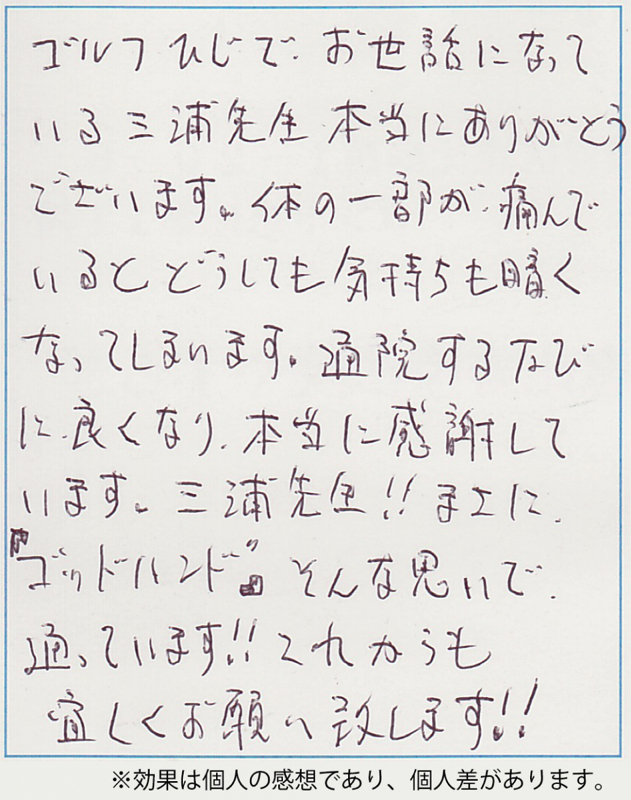 ゴルフひじで、お世話になって
いる三浦先生 本当にありがとう
ございます。体の一部が、痛んで
いるとどうしても気持ちも暗く
なってしまいます。通院するたび
に、良くなり、本当に感謝して
います。三浦先生!!まさに、
『ゴッドハンド』そんな思いで、
通っています!!これからも
宜しくお願い致します!!
※効果は個人の感想であり、個人差があります。